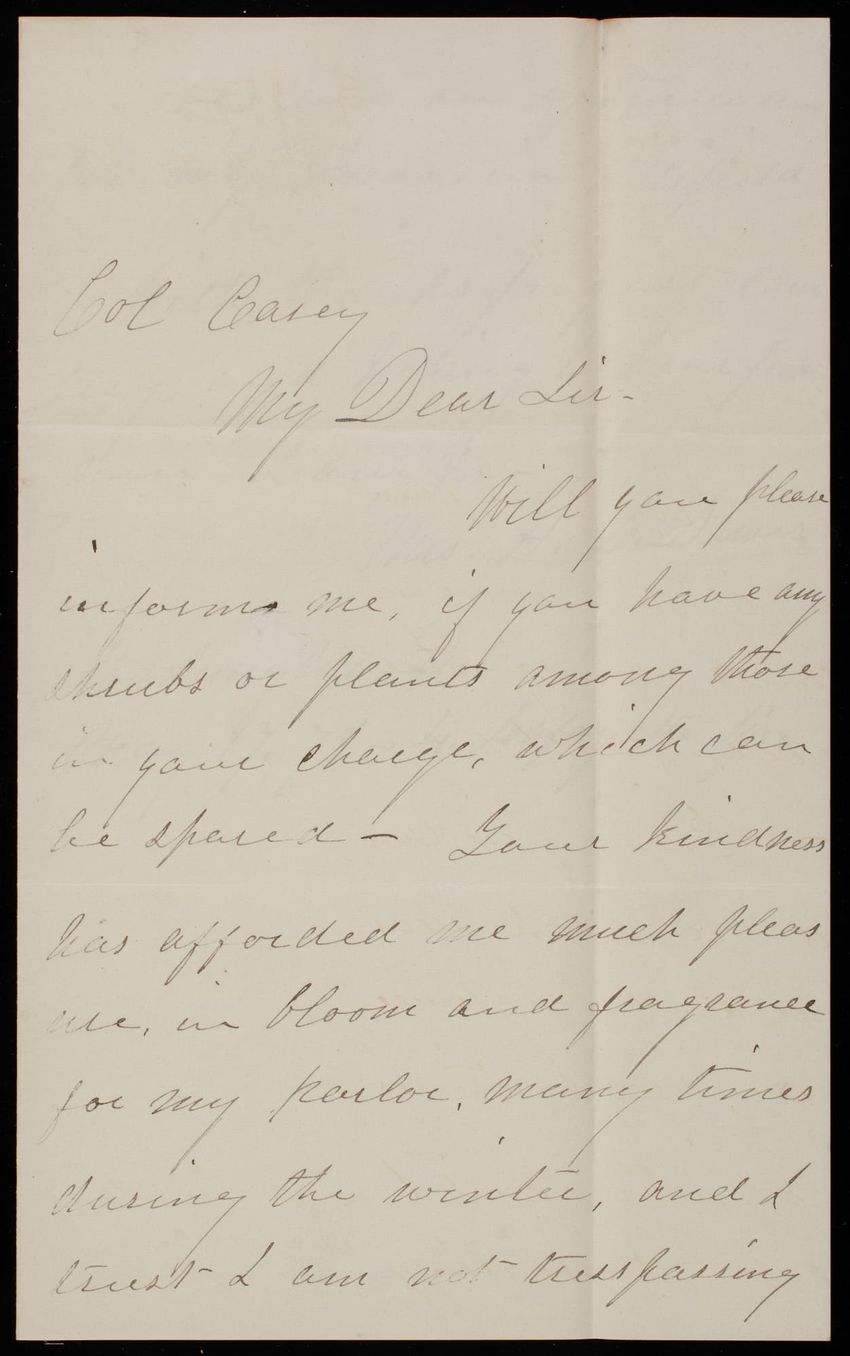 Col Casey
My Dear Sir -
Will you please
inform me, if you have any
shrubs or plants among those
in your charge, which can
be spared - Your kindness
has afforded me much pleas
ure, in bloom and fragrance
for my parlor, many times
during the winter, and I
trust I am not tresspassing